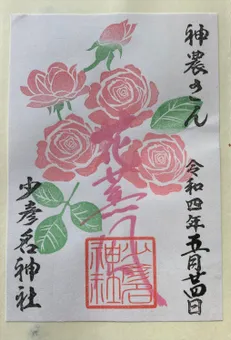 神農さん
令和四年五月廿四日
花薫る
少彦名神社
少彦名神社